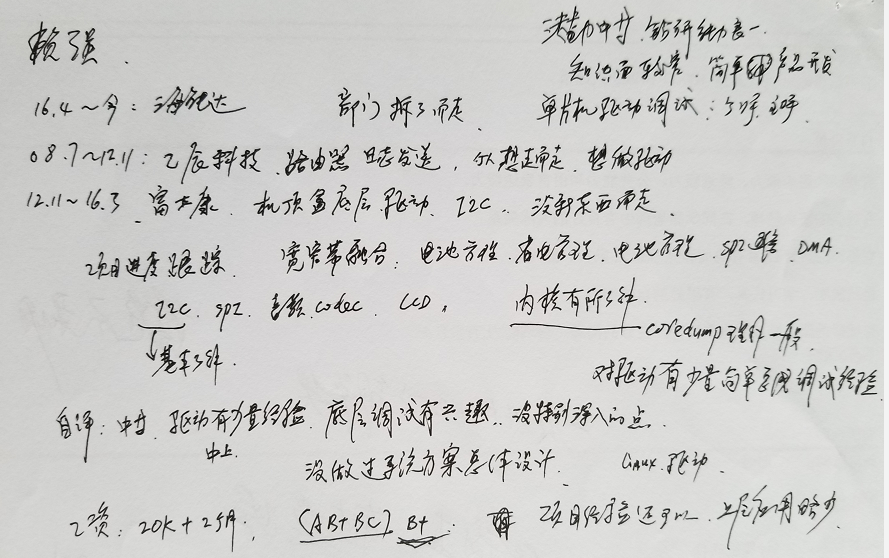 赖强
潜力中等,钻研能力一
知识面较窄,简单
16.4~今:海能达 部门拆了而走 单片机驱动调试:
08.7~12.11:乙辰科技,路由器日志发送,从想走而走,想做驱动
12.11~16.3 富士康,机顶盒底层驱动,I2C,没新东西而走,
项目进度跟踪 宽窄带融合:电池方程,省电方程,电池方程,SPI DMA.
I2C,SPI,音频,codec,CCD, 内核有所了解.
↓基本了解. coredump理解一般,
对驱动有少量简单的调试经验.
自评:中等,驱动有少量经验,底层调试有兴趣,没特别深入的点.
中上
没做过系统方案总体设计, Linux驱动.
工资:20K+25%, (AB+BC) B+. 项目经验还可以,上层应用略少